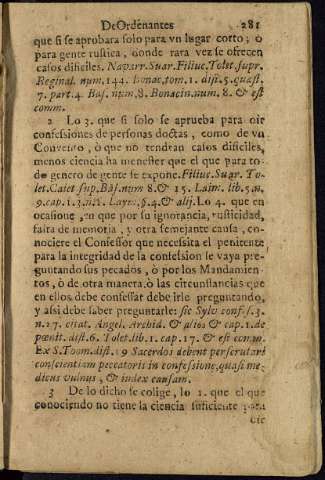 De Ordenantes 281
que si se aprobara solo para vn lugar corto; ò
para gente rustica, donde rara vez se ofrecen
casos dificiles. Navarr. Suar. Filiuc. Tolet. supr.
Reginal. num. 144. Bonac. tom. 1. disp. 5. quæst.
7. part. 4. Bas. num. 8. Bonacin. num. 8. & est
comm.
2 Lo 3. que si solo se aprueba para oir
confessiones de personas doctas, como de vn
Convento, ò que no tendran casos dificiles,
menos ciencia ha menester que el que para to-
do genero de gente se expone. Filiuc. Suar. To-
let. Caiet. sup. Bas. num 8. & 15. Laim. lib. 5.
9. cap. 1.3. Laym. §. 4. & alij. Lo 4. que en
ocasione, en que por su ignorancia, rusticidad,
falta de memoria, y otra semejante causa, co-
nociere el Confessor que necessita el penitente
para la integridad de la confession le vaya pre-
guntando sus pecados, ò por los Mandamien-
tos, ò de otra manera, ò las circunstancias que
en ellos debe confessar debe irle preguntando,
y assi debe saber preguntarle: sic Sylv conf. s. 3.
n. 17. citat. Angel. Archid. & alios & cap. 1. de
pœnit. dist. 6. Tolet. lib. 1. cap. 17. & est comm.
Ex S. Toom. dist. 19 Sacerdos debent perscrutari
conscientiam peccatoris in confessione, quasi me-
dicus vulnus, & index causam.
3 De lo dicho se colige, lo 1. que el que
conociendo no tiene la ciencia suficiente para